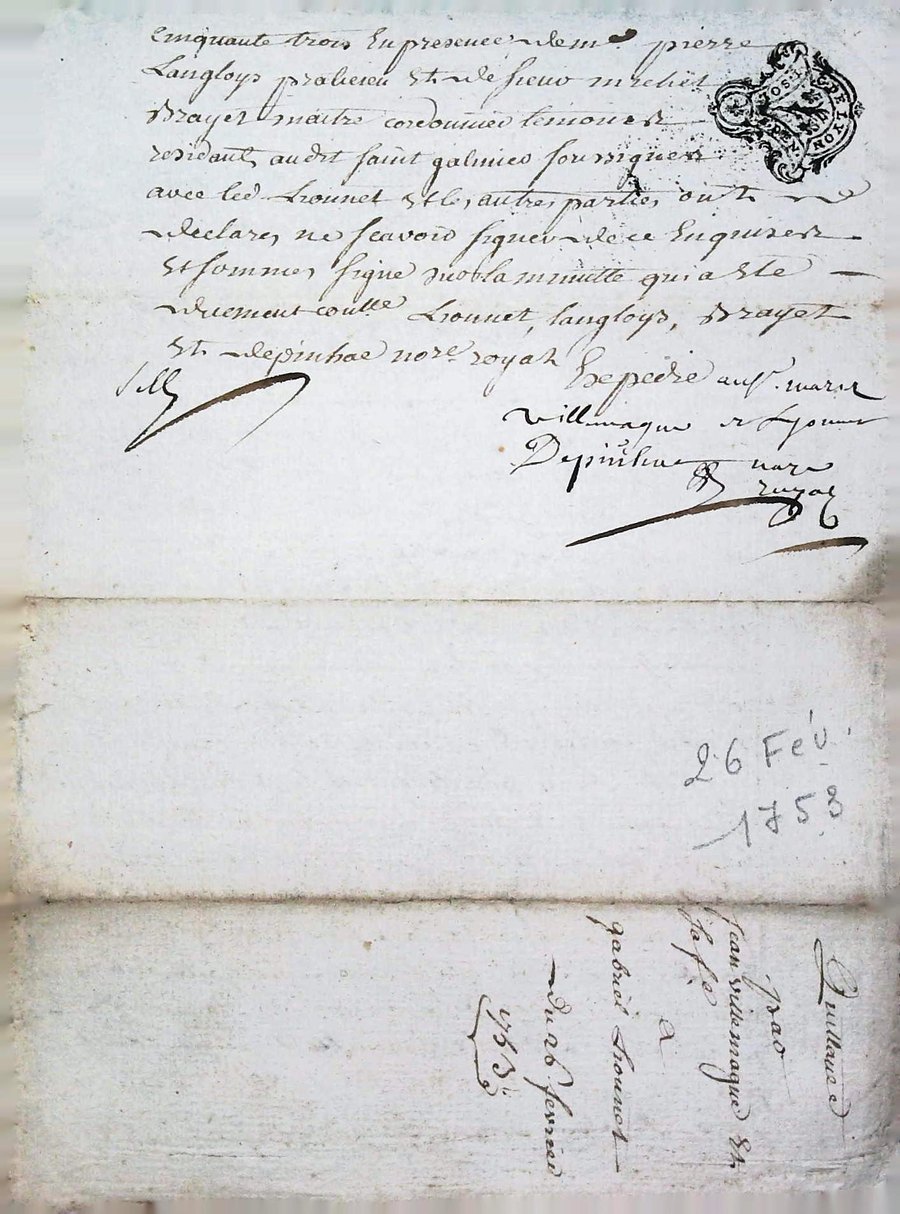 Cinquante trois En presence de me pierre
Langloys praticien Et de sieur michel
Brayet maitre cordonnier temoins
residants audit saint galmier soussignes
avec led Lionnet Et les autres parties ont
declares ne scavoir signer de ce Enquises
Et sommes signe sur la minutte qui a Ete
duement conlle Lionnet, langloys, Brayet
Et depinhac nore royal Expedie auxd. maries
villemague et Lyonnet
Depinhac nore
royal
26 Fév.
1753
Quittance
par
jean villemague Et
sa fe
a
gabriel Lionnet
Du 26 fevrier
1753
GDE LYON